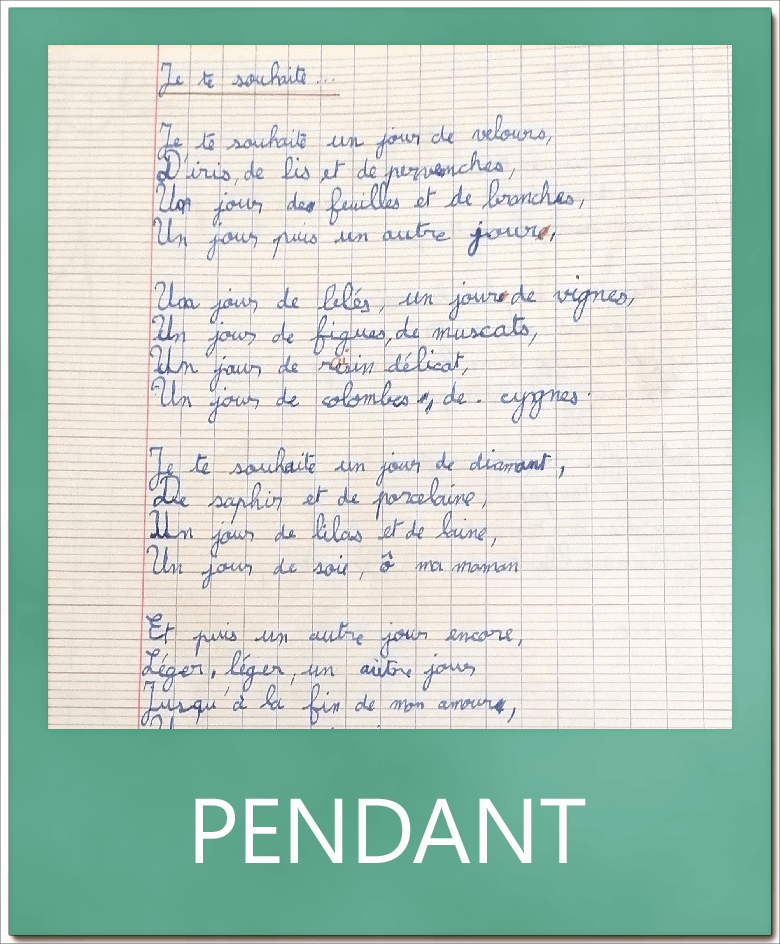 Je te souhaite...
Je te souhaite un jour de velours,
D'iris, de lis et de pervenches,
Un jour de feuilles et de branches,
Un jour puis un autre jour,
Un jour de blés, un jour de vignes,
Un jour de figues, de muscats,
Un jour de raisin délicat,
Un jour de colombes, de cygnes.
Je te souhaite un jour de diamant,
De saphir et de porcelaine,
Un jour de lilas et de laine,
Un jour de soie, ô ma maman
Et puis un autre jour encore,
Léger, léger, un autre jour
Jusqu'à la fin de mon amour,
PENDANT